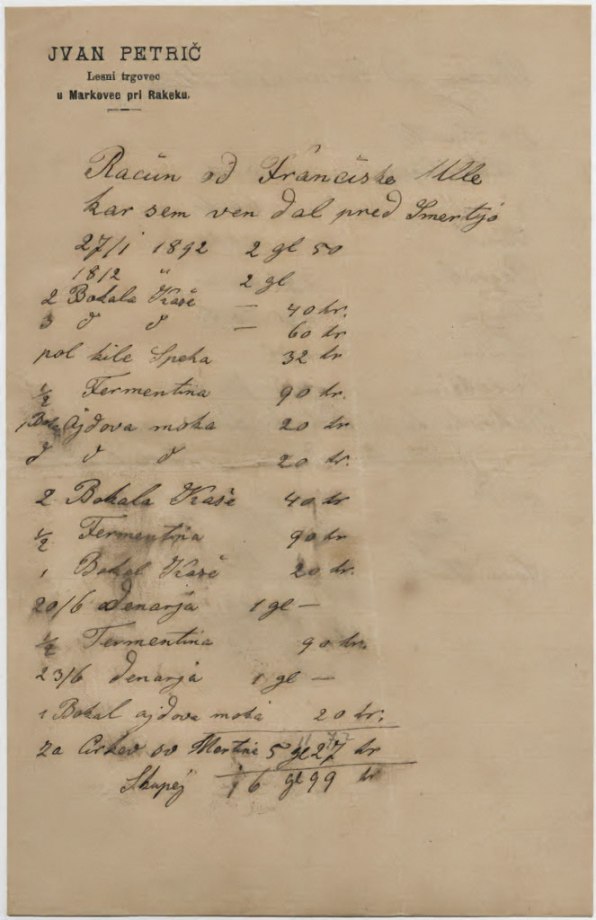 JVAN PETRIČ
Lesni trgovec
u Markovec pri Rakeku.
Račun od Frančiske Ule
kar sem ven dal pred Smertjo
27/1 1892 2 gl 50
18/2 " 2 gl
2 Bokala Kaše — 40 kr.
3 d d — 60 kr.
pol kile Speha 32 kr
1/2 Fermentina 90 kr.
1 Bokal Ajdova moka 20 kr
d d d 20 kr.
2 Bokala Kaše 40 kr
1/2 Fermentina 90 kr
1 Bokal Kaše 20 kr.
20/6 denarja 1 gl —
1/2 Termentina 90 kr.
23/6 denarja 1 gl —
1 Bokal ajdova moka 20 kr.
za Cirkev sv Mertina 5 gl 27 kr
Skupej 16 gl 99 kr